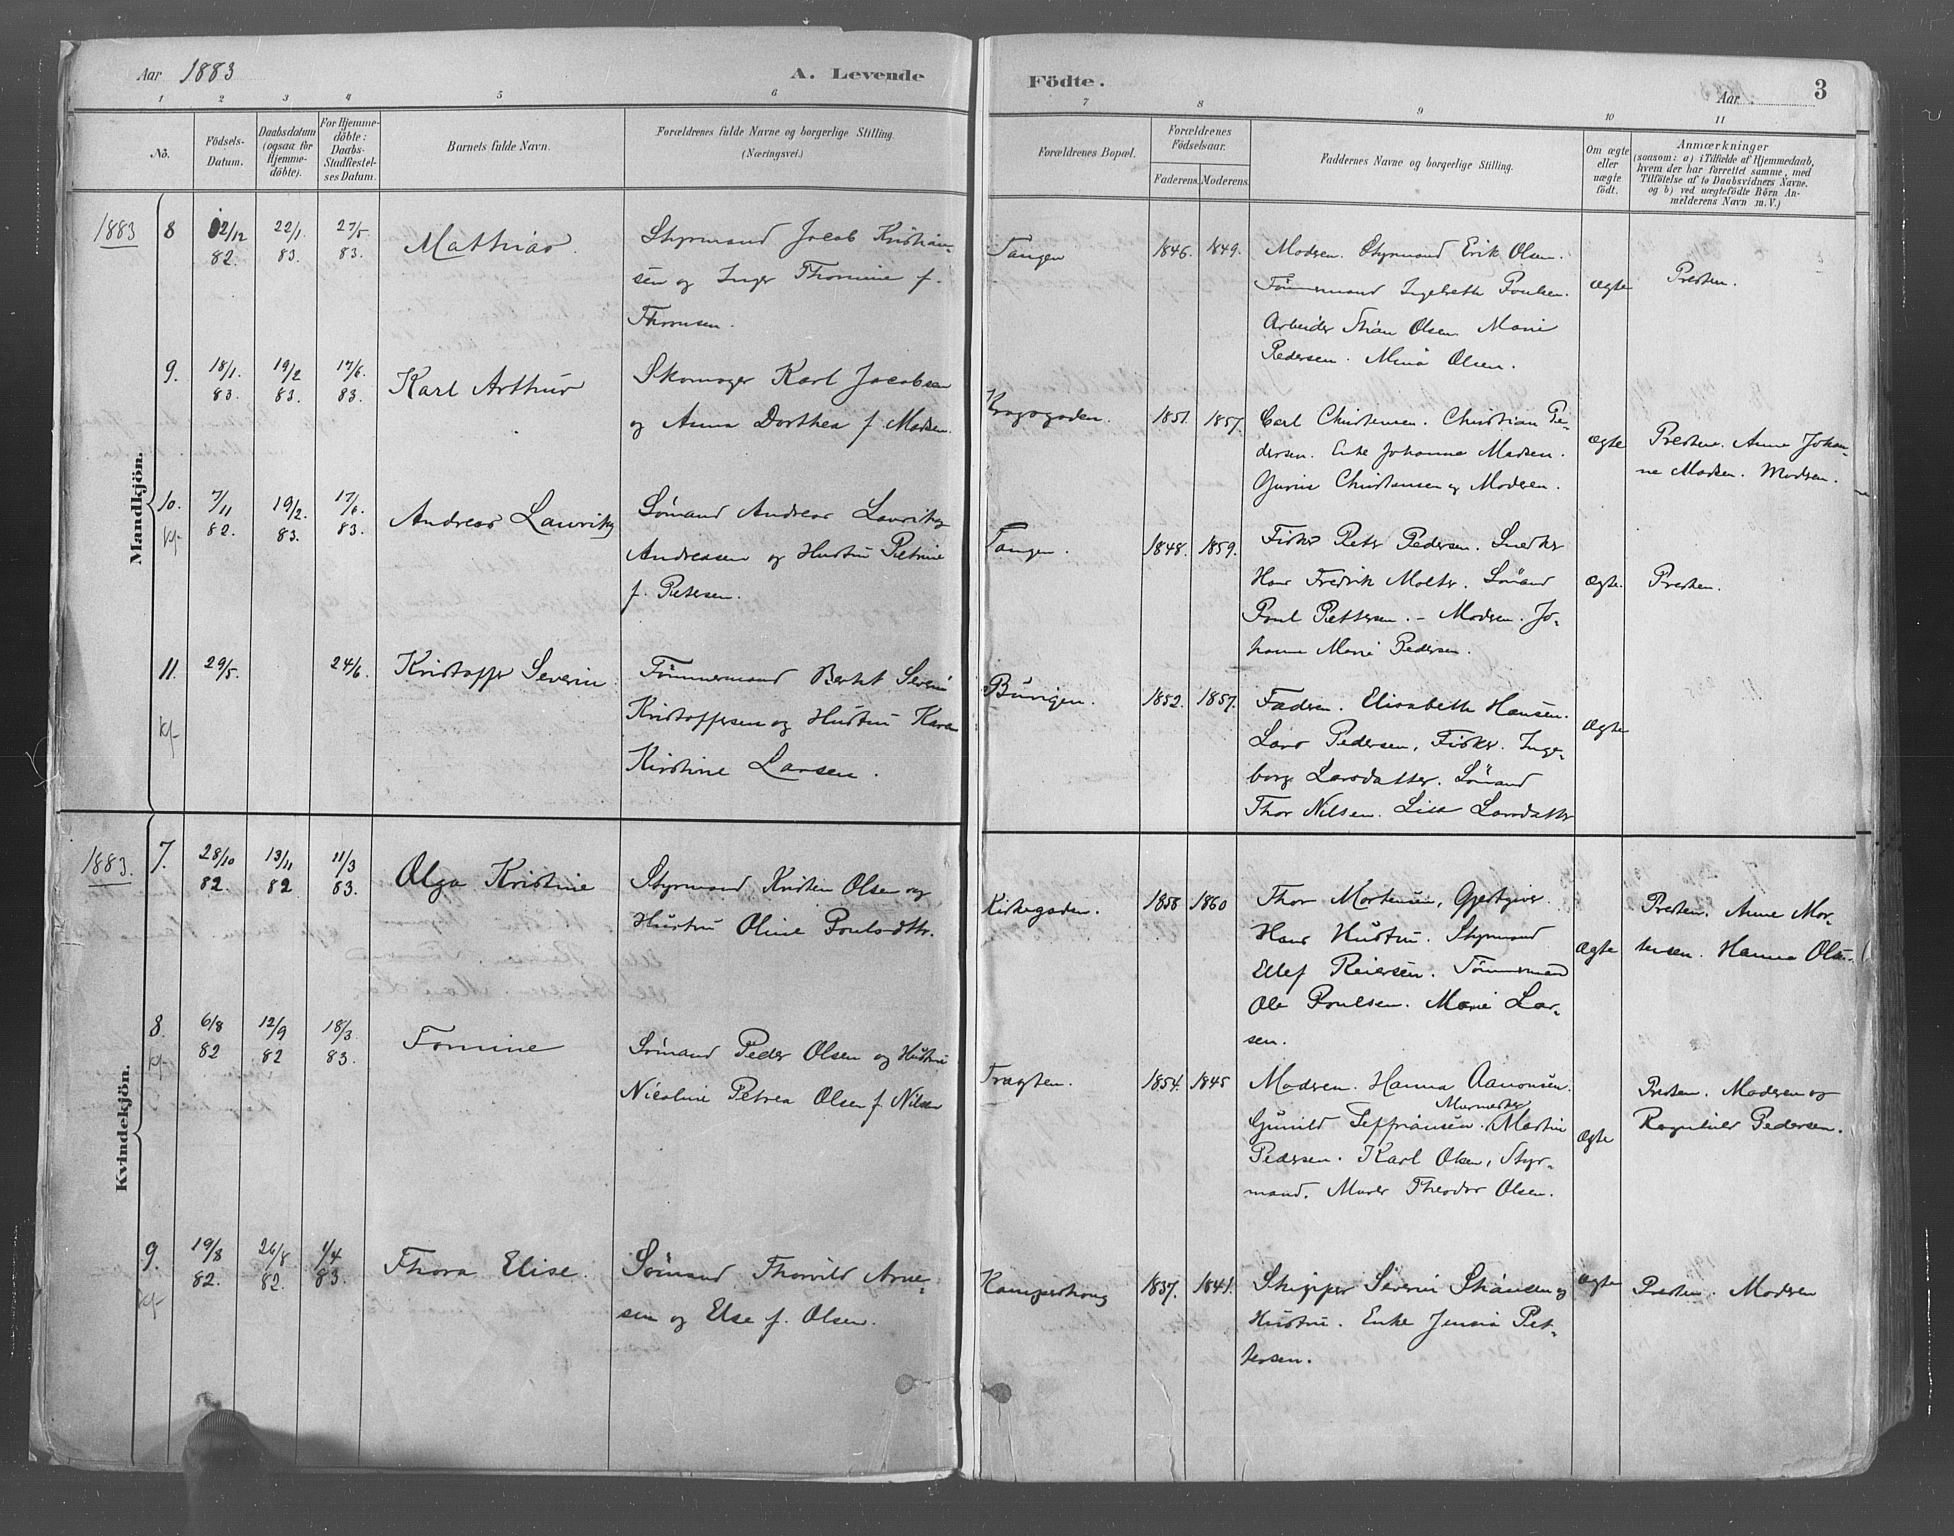 Aar 1883
A. Levende
Födte.
Aar
3
1
2
3
4
5
6
7
8
9
10
11
No.
Födsels-
Datum.
Daabsdatum
(ogsaa for
Hjemme-
döbte).
For Hjemme-
döbte:
Daabs-
Stadfæstel-
ses Datum.
Barnets fulde Navn.
Forældrenes fulde Navne og borgerlige Stilling.
(Næringsvei.)
Forældrenes Bopæl.
Forældrenes
Födselsaar.
Faderens.
Moderens.
Faddernes Navne og borgerlige Stilling.
Om ægte
eller
uægte
födt.
Anmærkninger
(saasom: a) i Tilfælde af Hjemmedaab,
hvem der har forrettet samme, med
Tilföielse af to Daabsvidners Navne,
og b) ved uægtefödte Börn An-
melderens Navn m. V.)
Mandkjön.
1883
8
2/12
82.
22/1.
83.
27/5.
83.
Mathias.
Styrmand Jacob Kristian-
sen og Inger Thomine f.
Thomsen.
Tangen
1846.
1849.
Modren. Styrmand Erik Olsen.
Tømmermand Ingebrette Poulsen.
Arbeider Stian Olsen Marie
Pedersen. Mina Olsen.
Ægte
Presten.
9.
18/1.
83.
19/2
83.
17/6.
83.
Karl Arthur
Skomager Karl Jacobsen
og Anna Dorthea f. Madsen.
Kragsgaden.
1851.
1857.
Carl Christensen. Christian Pe-
dersen. Enke Johanna Madsen.
Gurine Christensen og Modren.
Ægte
Presten. Anne Johan-
ne Madsen. Modren.
10.
kf.
7/11
82.
19/2.
83.
17/6.
83.
Andreas Lauritz
Sømand Andreas Lauritz
Andreasen og Hustru Petrine
f. Petersen.
Tangen.
1848.
1859.
Fisker Peter Pedersen. Snedker
Hans Fredrik Molter. Sømand
Poul Pettersen. – Modren. Jo-
hanne Marie Pedersen.
Ægte.
Presten.
11.
kf.
29/5.
24/6.
Kristoffer Severin
Tømmermand Bertel Severin
Kristoffersen og Hustru Karen
Kirstine Larsen.
Burigen.
1852.
1857.
Fadren. Elisabeth Hansen.
Lars Pedersen, Fisker. Inge-
borg Larsdatter. Sømand
Thor Nilsen. Lise Larsdatter
Ægte
Kvindekjön.
1883.
7.
28/10
82.
13/11
82
11/3
83.
Olga Kristine
Styrmand Kristen Olsen og
Hustru Oline Poulsdtr.
Kirkegaden.
1858
1860
Thor Mortensen, Gjestgiver.
Hans Hustru. Styrmand
Ellef Reiersen. Tømmermand
Ole Poulsen. Marie Lar-
sen.
Ægte
Presten. Anne Mor-
tensen. Hanna Olsen.
8.
kf.
6/8
82
12/9
82
18/3
83.
Tomine
Sømand Peder Olsen og Hustru
Nicoline Petrea Olsen f. Nilsen
Tragten.
1854.
1845
Modren. Hanna Aanonsen.
Murmester
Gunild Teffriansen. Martin
Pedersen. Karl Olsen, Styr-
mand. Murer Theodor Olsen.
Ægte
Presten. Modren og
Ragnhild Pedersen.
9.
kf.
19/8
82.
26/8
82.
1/4
83.
Thora Elise.
Sømand Thorvild Arne-
sen og Else f. Olsen.
Kamperhaug
1837.
1841.
Skipper Severin Stiansen og
Hustru. Enke Jensia Pet-
tersen.
Ægte
Presten. Modren